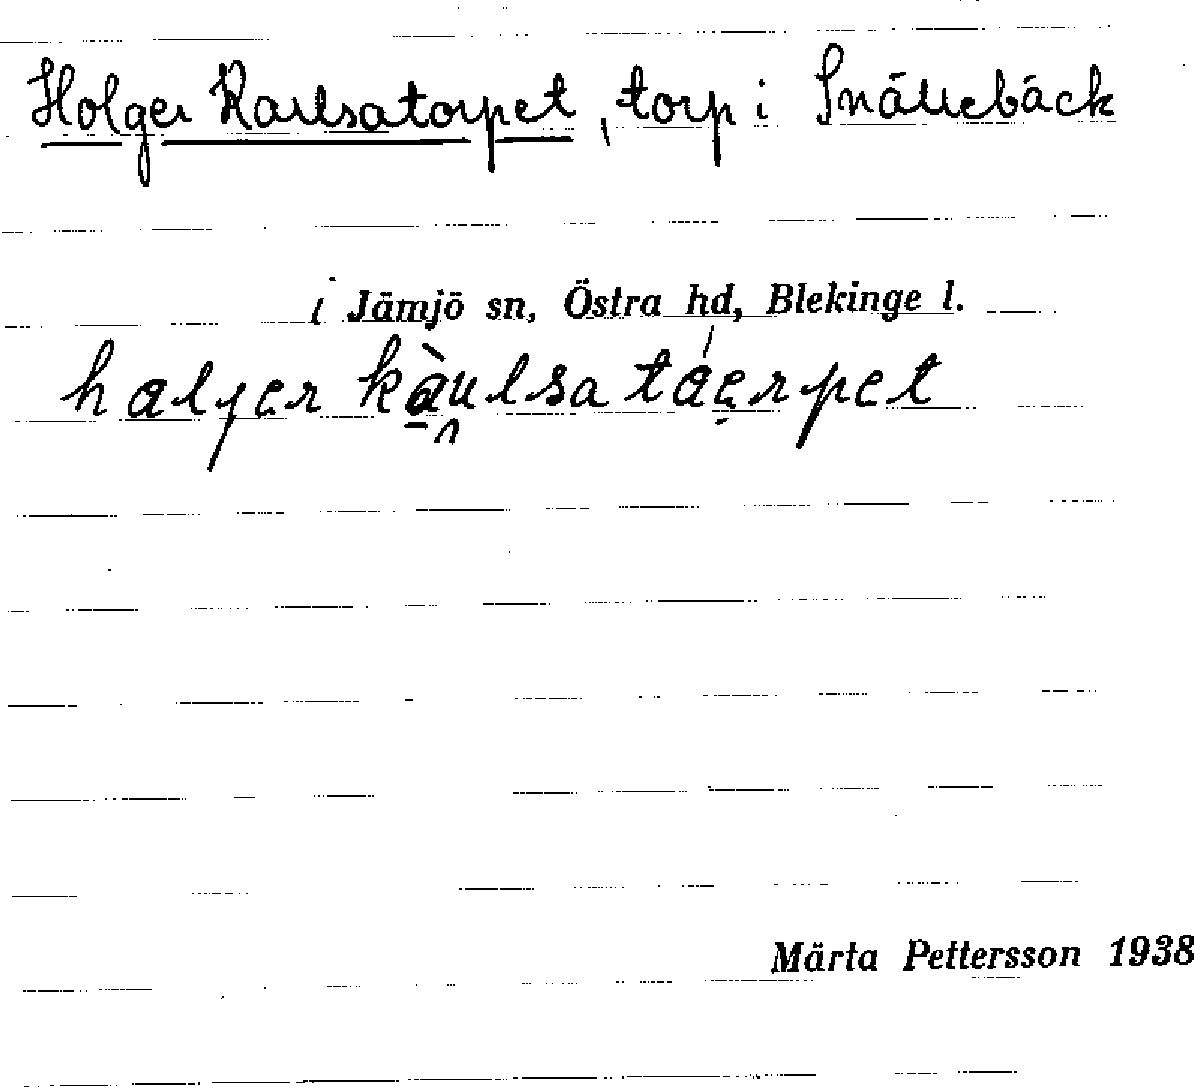 Holger Karlsatorpet, torp i Snällebäck
i Jämjö sn, Östra hd, Blekinge l.
halyer kàulsa táerpet
Märta Pettersson 1938